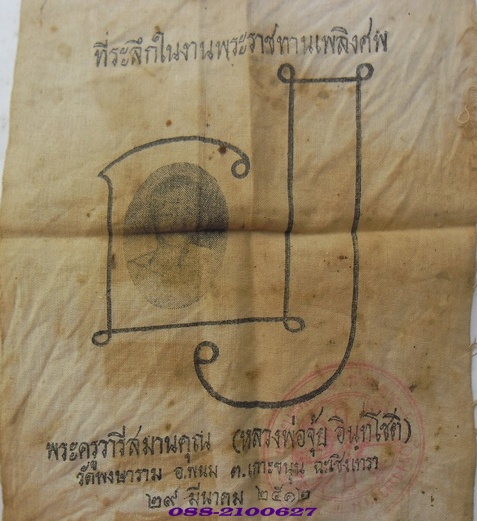 ที่ระลึกในงานพระราชทานเพลิงศพ
พระครูวารีสมานคุณ (หลวงพ่อจุ้ย อินฺทโชติ)
วัดพงษาราม อ.พนม ต.เกาะขนุน ฉะเชิงเทรา
๒๙ มีนาคม ๒๕๑๒
088-2100627